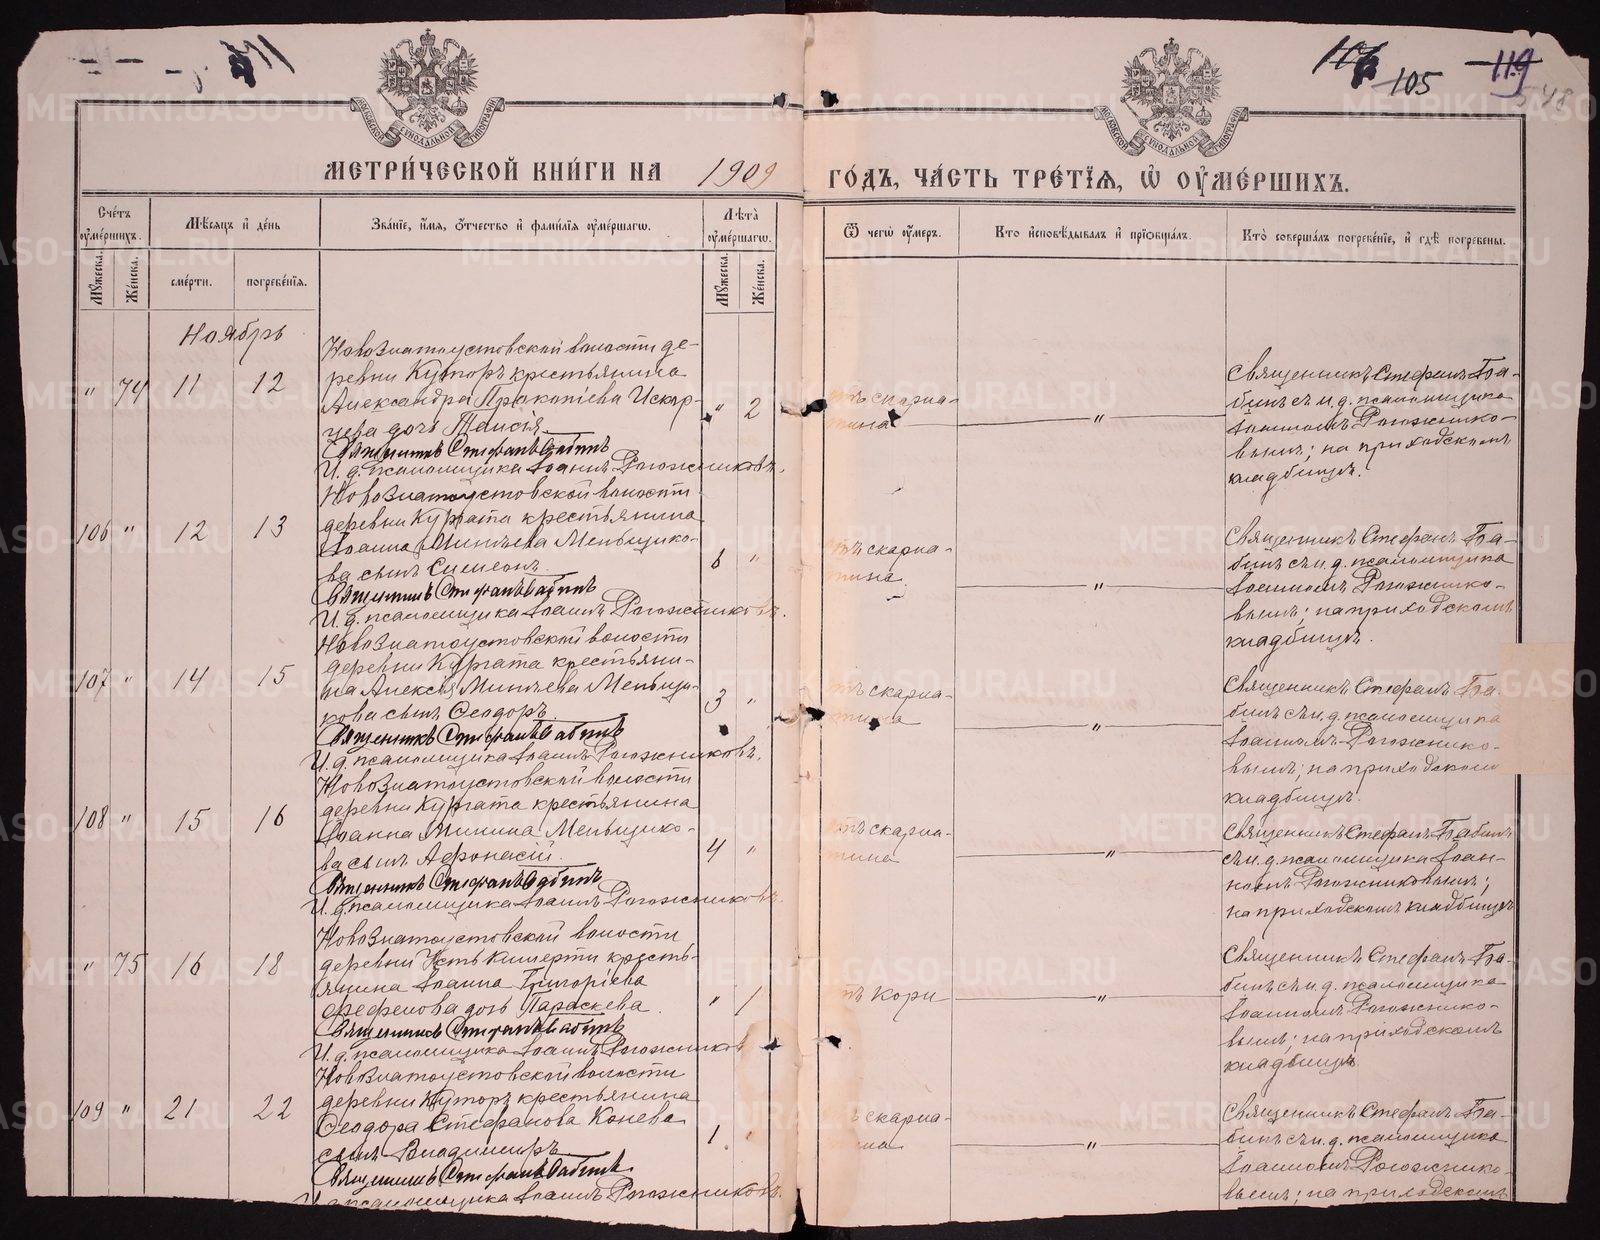 105
119
548
МОСКОВСКОЙ СУНОДАЛЬНОЙ ТИПОГРАФІИ
МОСКОВСКОЙ СУНОДАЛЬНОЙ ТИПОГРАФІИ
МЕТРИ́ЧЕСКОЙ КНИ́ГИ НА 1909 ГО́ДЪ, ЧА́СТЬ ТРЕ́ТЇѦ, Ѡ ОУ҆МЕ́РШИХЪ.
Сче́тъ оу҆ме́ршихъ.
Мꙋ́жеска.
Же́нска.
Мѣ́сѧцъ и҆ де́нь
сме́рти.
погребе́нїѧ.
Зва́нїе, и҆́мѧ, ѻ҆́тчество и҆ фами́лїѧ оу҆ме́ршагѡ.
Лѣта̀ оу҆ме́ршагѡ.
Мꙋ́жеска.
Же́нска.
Ѿ чегѡ̀ оу҆́меръ.
Кто̀ и҆сповѣ́дывалъ и҆ прїѻбща́лъ.
Кто̀ соверша́лъ погребе́нїе, и҆ гдѣ̀ погребе́ны.
Ноябрь
" 74 11 12
Новозлатоустовской волости де-
ревни Куторъ крестьянина
Александра Прокопіева Искор-
цева дочь Таисія.
Священникъ Стефанъ Бабинъ
И. д. псаломщика Іоаннъ Рогожниковъ.
" 2
отъ скарла-
тина
"
Священникъ Стефанъ Ба-
бинъ съ и. д. псаломщика
Іоанномъ Рогожнико-
вымъ; на приходскомъ
кладбищѣ.
106 " 12 13
Новозлатоустовской волости
деревни Кургата крестьянина
Іоанна Минѣева Меньщико-
ва сынъ Симеонъ.
Священникъ Стефанъ Бабинъ
И. д. псаломщика Іоаннъ Рогожниковъ.
6 "
отъ скарла-
тина.
"
Священникъ Стефанъ Ба-
бинъ съ и. д. псаломщика
Іоанномъ Рогожнико-
вымъ; на приходскомъ
кладбищѣ.
107 " 14 15
Новозлатоустовской волости
деревни Кургата крестьяни-
на Алексія Минѣева Меньщи-
кова сынъ Ѳеодоръ.
Священникъ Стефанъ Бабинъ
И. д. псаломщика Іоаннъ Рогожниковъ.
3 "
отъ скарла-
тина
"
Священникъ Стефанъ Ба-
бинъ съ и. д. псаломщика
Іоанномъ Рогожнико-
вымъ; на приходскомъ
кладбищѣ.
108 " 15 16
Новозлатоустовской волости
деревни Кургата крестьянина
Іоанна Минина Меньщико-
ва сынъ Афонасій.
Священникъ Стефанъ Бабинъ
И. д. псаломщика Іоаннъ Рогожниковъ.
4 "
отъ скарла-
тина
"
Священникъ Стефанъ Бабинъ
съ и. д. псаломщика Іоан-
номъ Рогожниковымъ;
на приходскомъ кладбищѣ
" 75 16 18
Новозлатоустовской волости
деревни Усть Кишерти кресть-
янина Іоанна Григоріева
Фефелова дочь Параскева.
Священникъ Стефанъ Бабинъ
И. д. псаломщика Іоаннъ Рогожников
" 1
отъ кори
"
Священникъ Стефанъ Ба-
бинъ съ и. д. псаломщика
Іоанномъ Рогожнико-
вымъ; на приходскомъ
кладбищѣ
109 " 21 22
Новозлатоустовской волости
деревни Куторъ крестьянина
Ѳеодора Стефанова Конева
сынъ Владимиръ
Священникъ Стефанъ Бабинъ
И. д. псаломщика Іоаннъ Рогожниковъ.
1 "
ъ скарла-
тина
"
Священникъ Стефанъ Ба-
бинъ съ и. д. псаломщика
Іоанномъ Рогожнико-
вымъ; на приходскомъ
METRIKI.GASO-URAL.RU